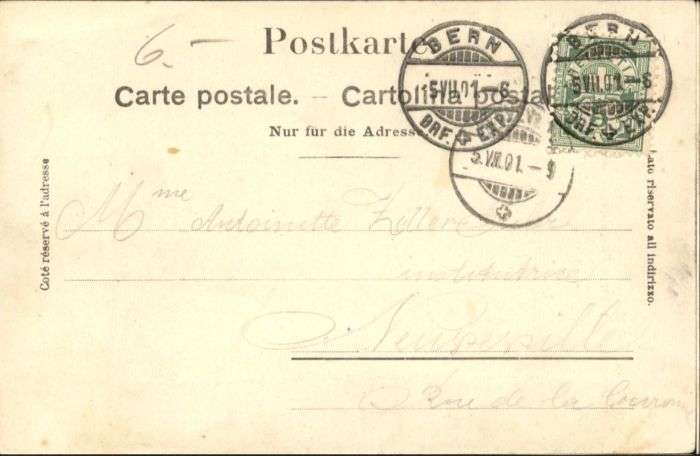 6.—
Postkarte
Carte postale. — Cartolina postal
Nur für die Adresse
BERN
5.VII.01.-6
BRF. EXP.
BERN
5.VII.01.-6
BRF. EXP.
5.VII.01.-9
Coté réservé à l'adresse
Lato riservato all indirizzo.
Mme Antoinette
institutrice
Rue de la